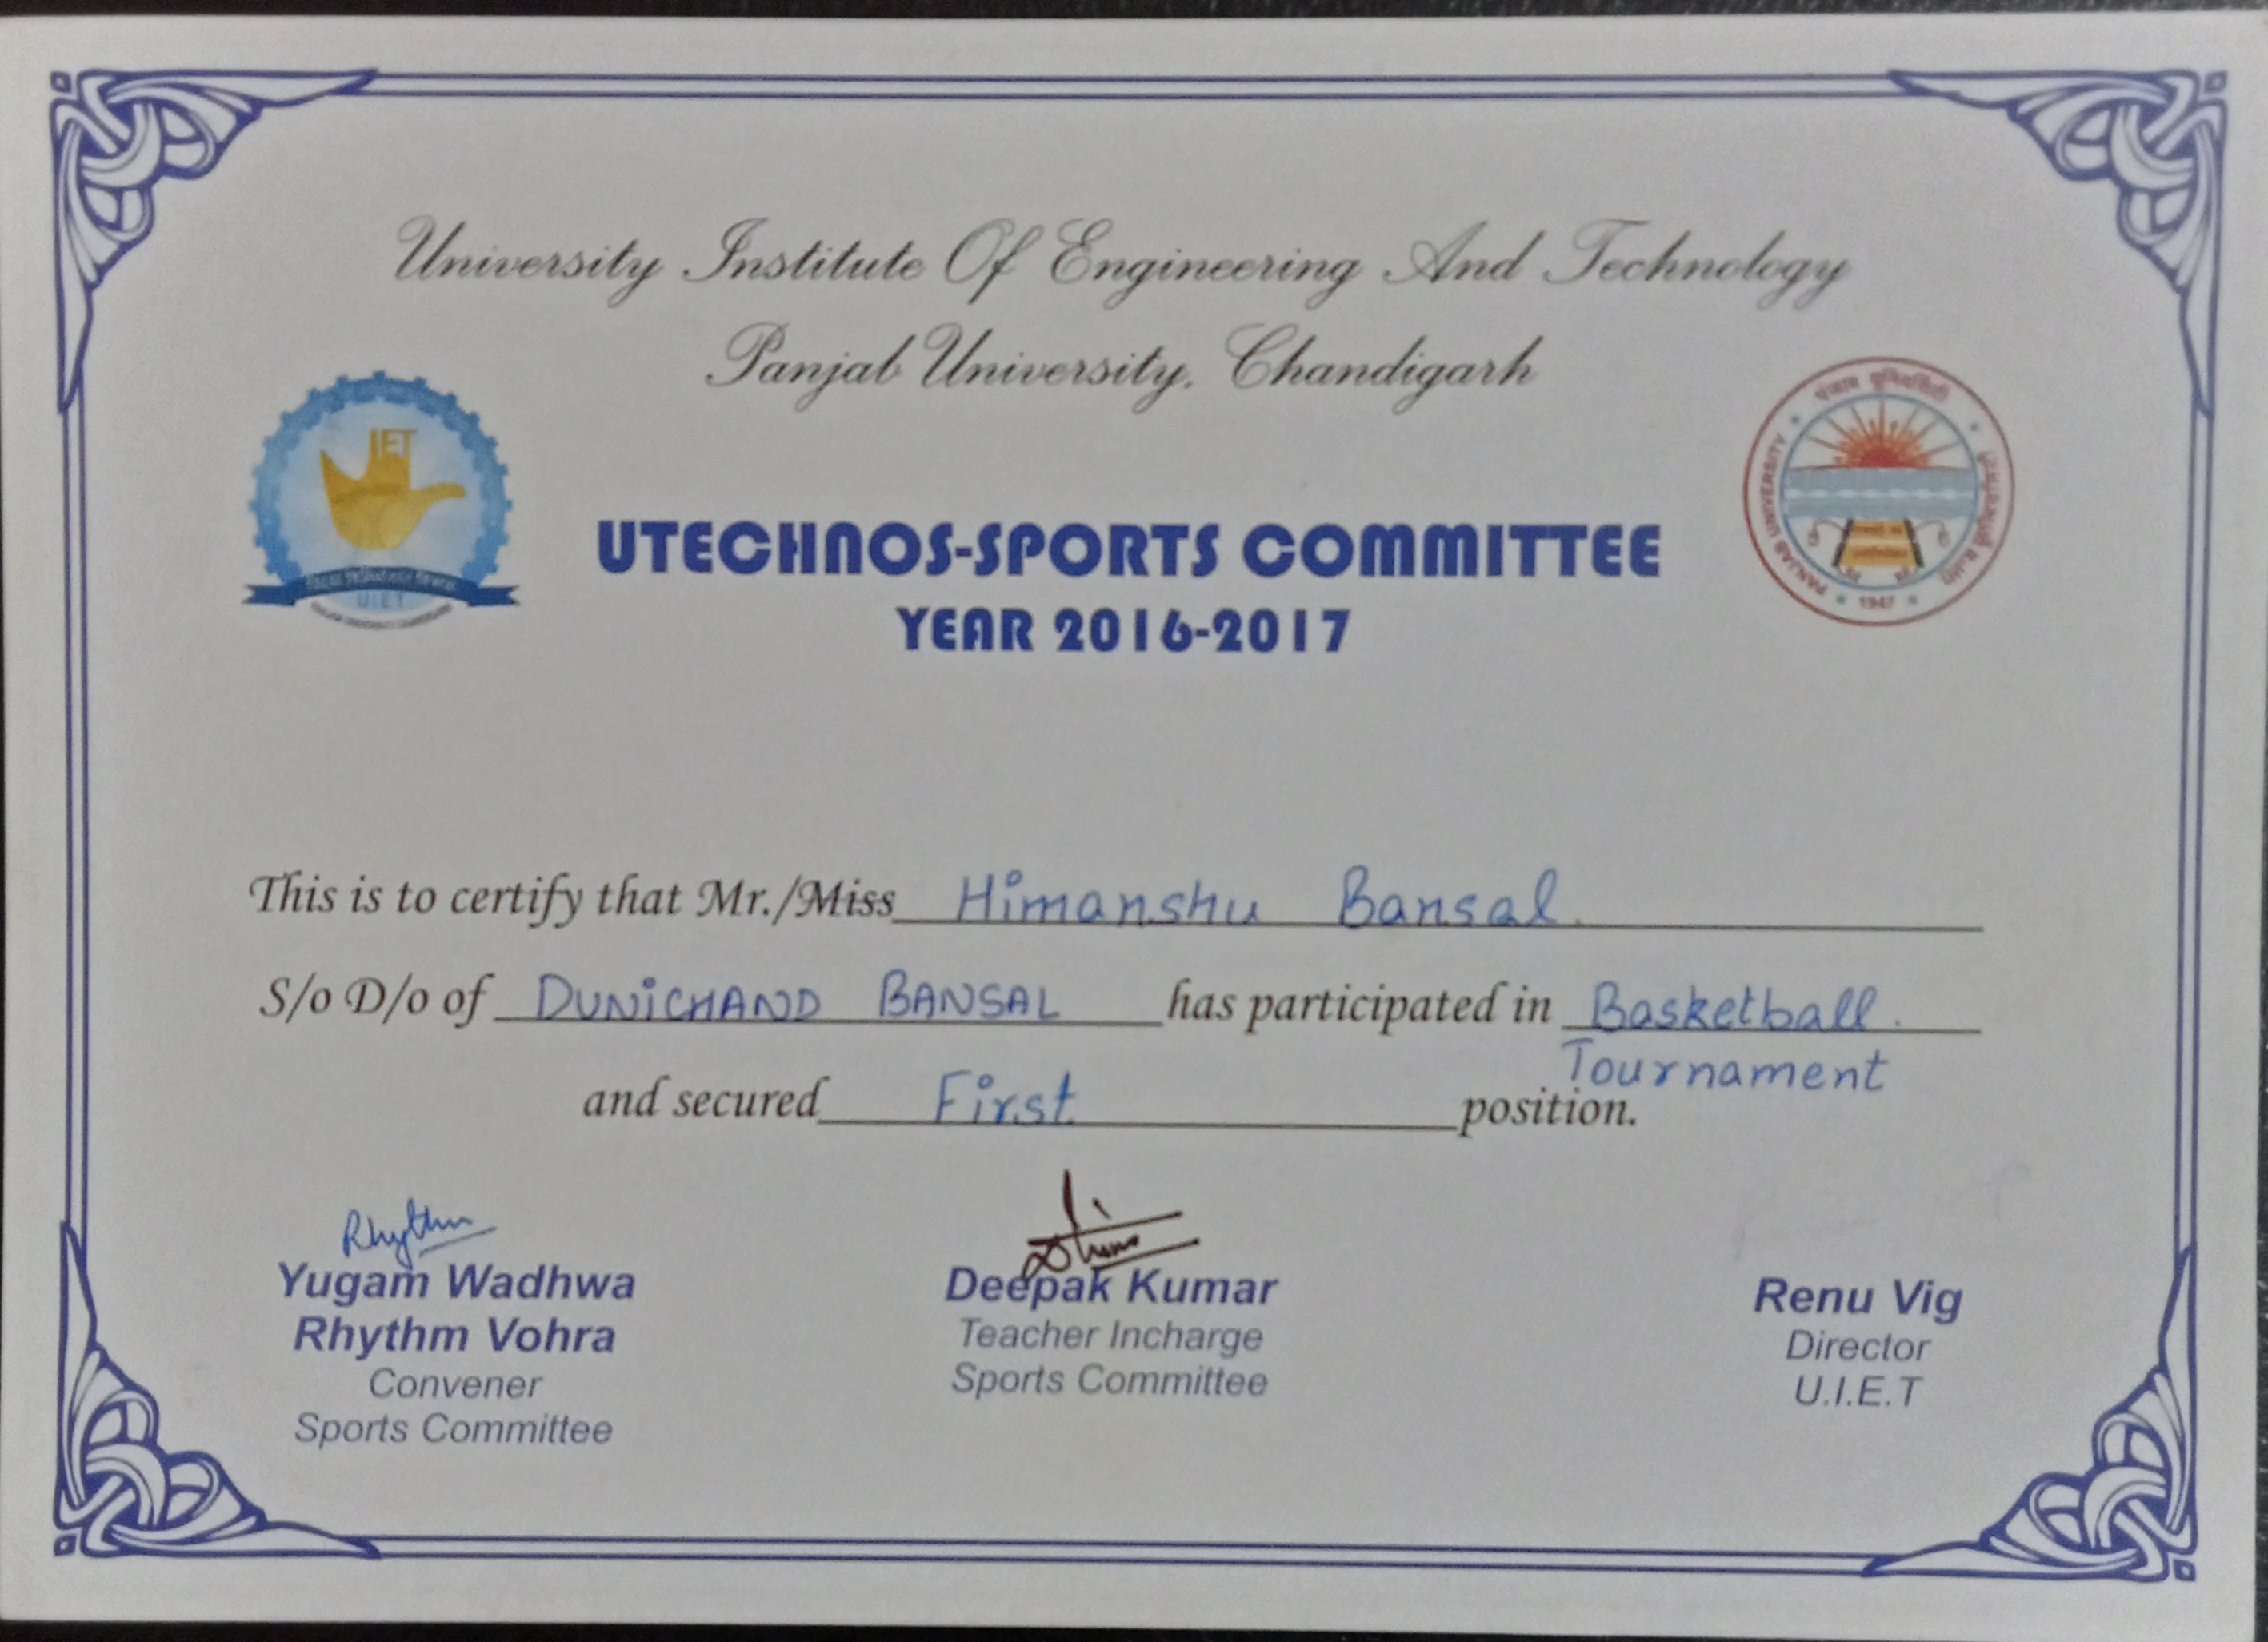 University Institute Of Engineering And Technology
Panjab University, Chandigarh
IET
UIET
पंजाब युनिवर्सिटी
PANJAB UNIVERSITY
1947
UTECHNOS-SPORTS COMMITTEE
YEAR 2016-2017
This is to certify that Mr./Miss Himanshu Bansal.
S/o D/o of DUNICHAND BANSAL has participated in Basketball.
Tournament
and secured First position.
Rhythm
Yugam Wadhwa
Rhythm Vohra
Convener
Sports Committee
Deepak Kumar
Teacher Incharge
Sports Committee
Renu Vig
Director
U.I.E.T